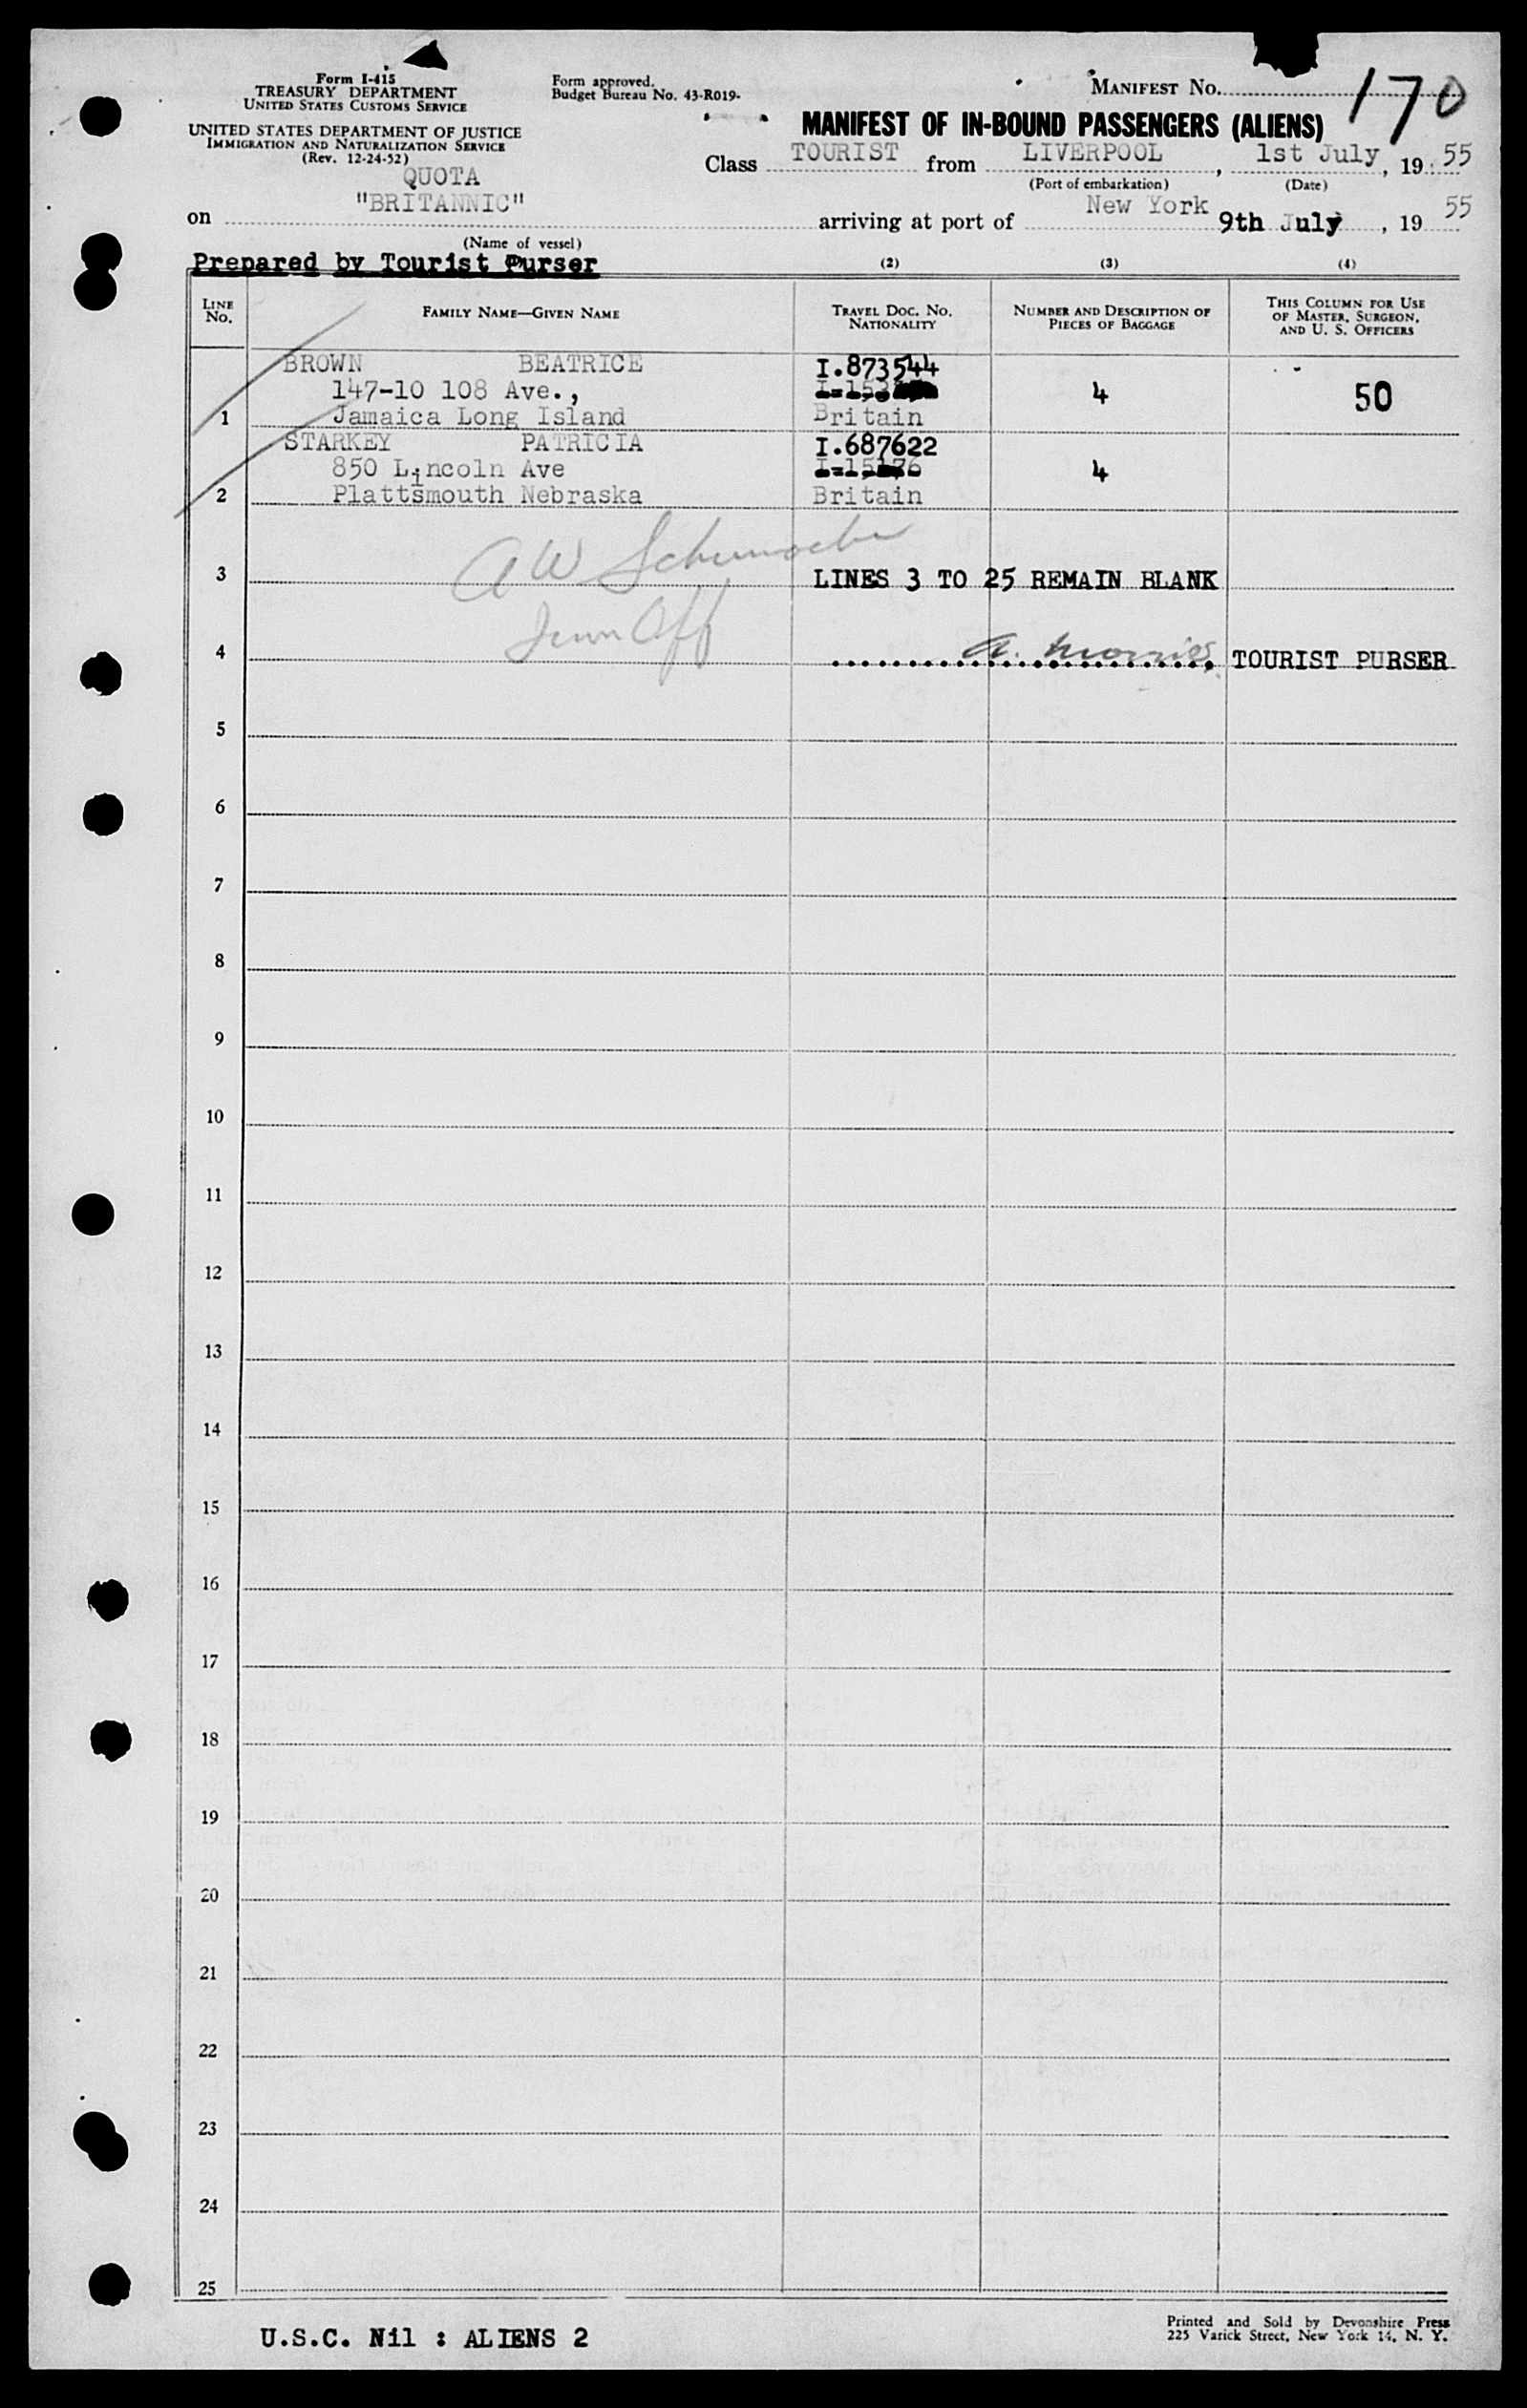 Form I-415
TREASURY DEPARTMENT
UNITED STATES CUSTOMS SERVICE
UNITED STATES DEPARTMENT OF JUSTICE
IMMIGRATION AND NATURALIZATION SERVICE
(Rev. 12-24-52)
QUOTA
Form approved.
Budget Bureau No. 43-R019-
MANIFEST No. 170
MANIFEST OF IN-BOUND PASSENGERS (ALIENS)
Class TOURIST from LIVERPOOL, 1st July, 19 55
(Port of embarkation) (Date)
on "BRITANNIC" arriving at port of New York 9th July, 19 55
(Name of vessel)
Prepared by Tourist Purser (2) (3) (4)
LINE No. FAMILY NAME—GIVEN NAME TRAVEL DOC. NO. NATIONALITY NUMBER AND DESCRIPTION OF PIECES OF BAGGAGE THIS COLUMN FOR USE OF MASTER, SURGEON, AND U. S. OFFICERS
BROWN BEATRICE I.873544
147-10 108 Ave., 4 50
1 Jamaica Long Island Britain
STARKEY PATRICIA I.687622
850 Lincoln Ave 4
2 Plattsmouth Nebraska Britain
A W Schumacher
3 LINES 3 TO 25 REMAIN BLANK
Imm Off
4 A. Morris TOURIST PURSER
5
6
7
8
9
10
11
12
13
14
15
16
17
18
19
20
21
22
23
24
25
U.S.C. Nil : ALIENS 2
Printed and Sold by Devonshire Press
225 Varick Street, New York 14, N. Y.